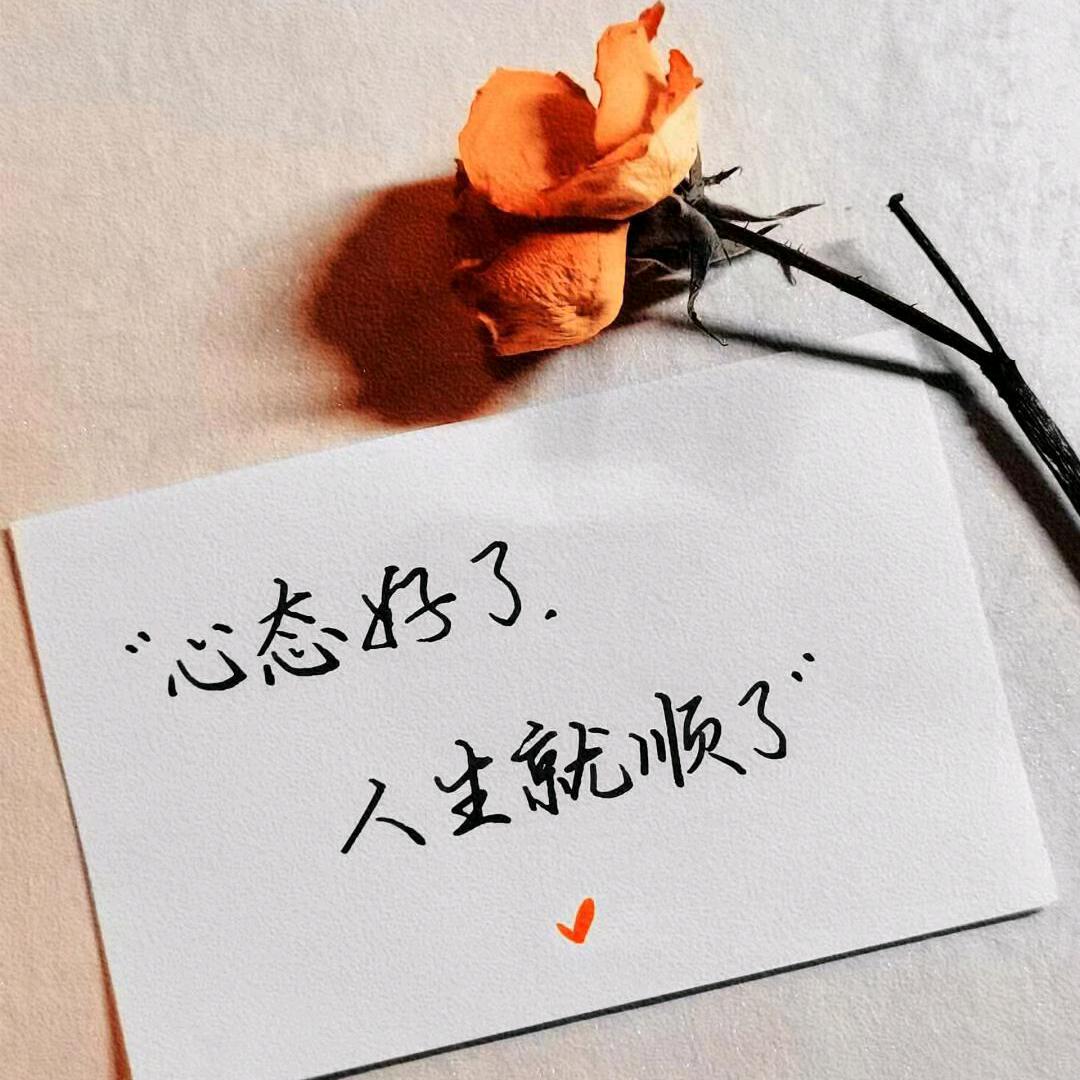 “心态好了.
人生就顺了”